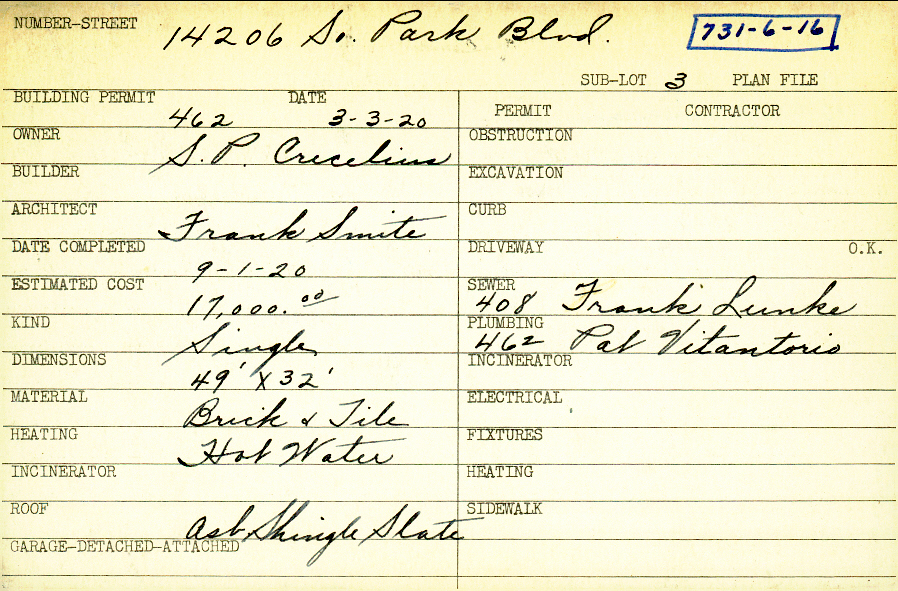 NUMBER-STREET 14206 So. Park Blvd. 731-6-16
SUB-LOT 3 PLAN FILE
BUILDING PERMIT 462 DATE 3-3-20
OWNER S. P. Crecelius
BUILDER
ARCHITECT Frank Smite
DATE COMPLETED 9-1-20
ESTIMATED COST 17,000.00
KIND Single
DIMENSIONS 49' X 32'
MATERIAL Brick & Tile
HEATING Hot Water
INCINERATOR
ROOF Asb Shingle Slate
GARAGE-DETACHED-ATTACHED
PERMIT CONTRACTOR
OBSTRUCTION
EXCAVATION
CURB
DRIVEWAY O.K.
SEWER 408 Frank Lunke
PLUMBING 462 Pat Vitantorio
INCINERATOR
ELECTRICAL
FIXTURES
HEATING
SIDEWALK